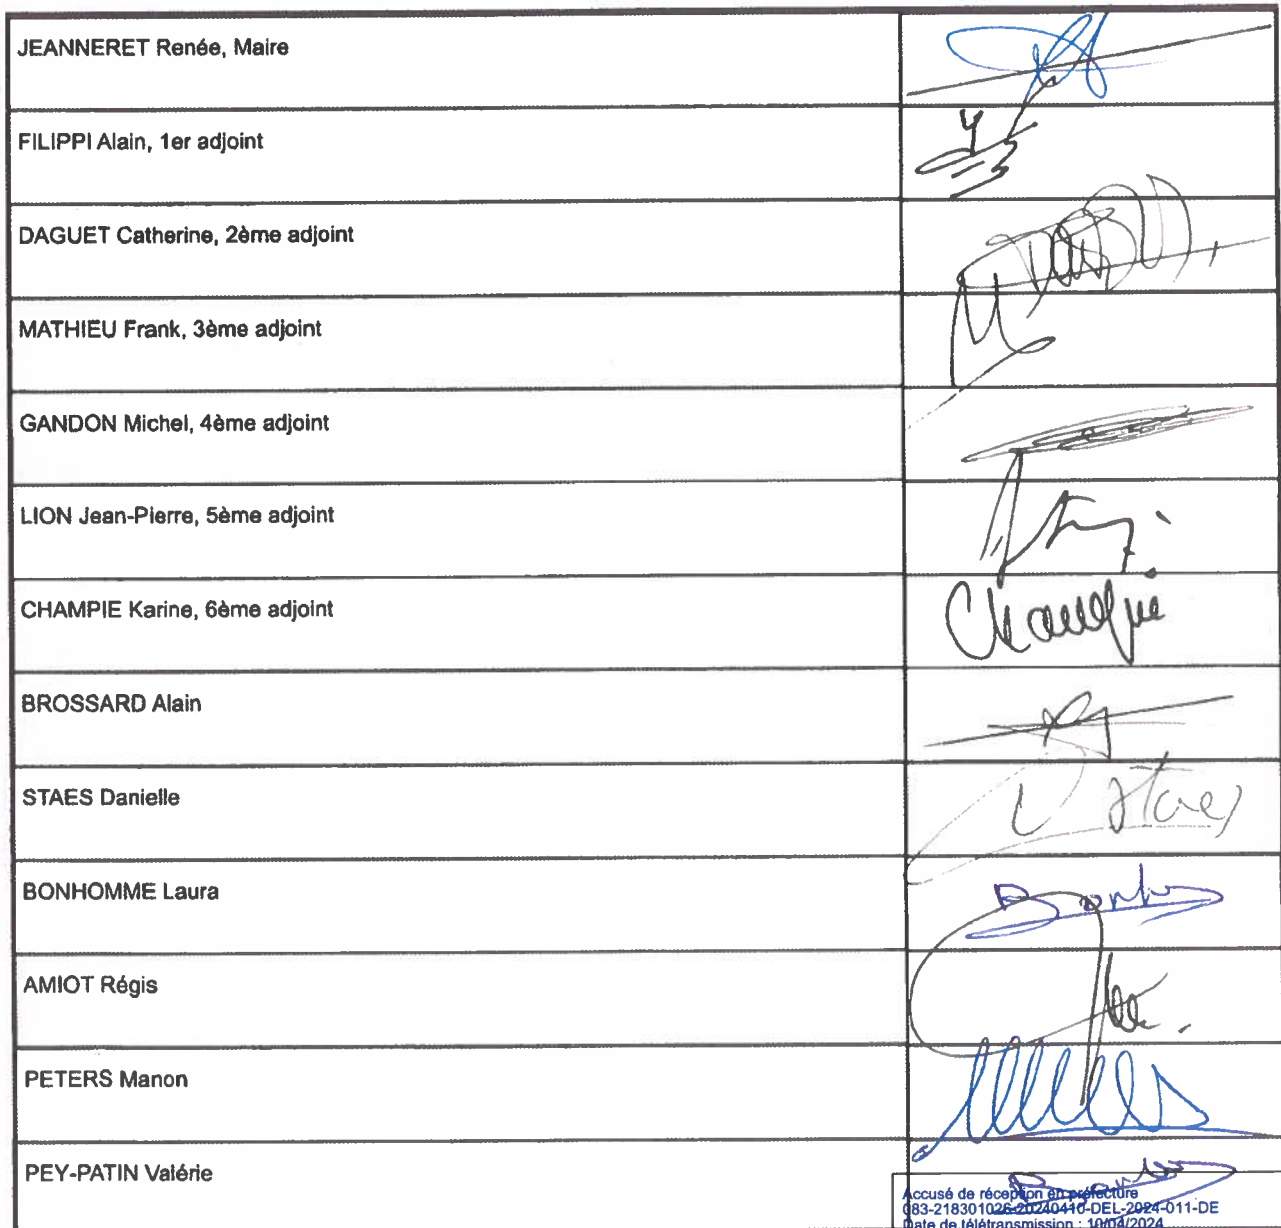 JEANNERET Renée, Maire
FILIPPI Alain, 1er adjoint
DAGUET Catherine, 2ème adjoint
MATHIEU Frank, 3ème adjoint
GANDON Michel, 4ème adjoint
LION Jean-Pierre, 5ème adjoint
CHAMPIE Karine, 6ème adjoint
BROSSARD Alain
STAES Danielle
BONHOMME Laura
AMIOT Régis
PETERS Manon
PEY-PATIN Valérie
Accusé de réception en préfecture
083-218301026-20240410-DEL-2024-011-DE
Date de télétransmission : 10/04/2024